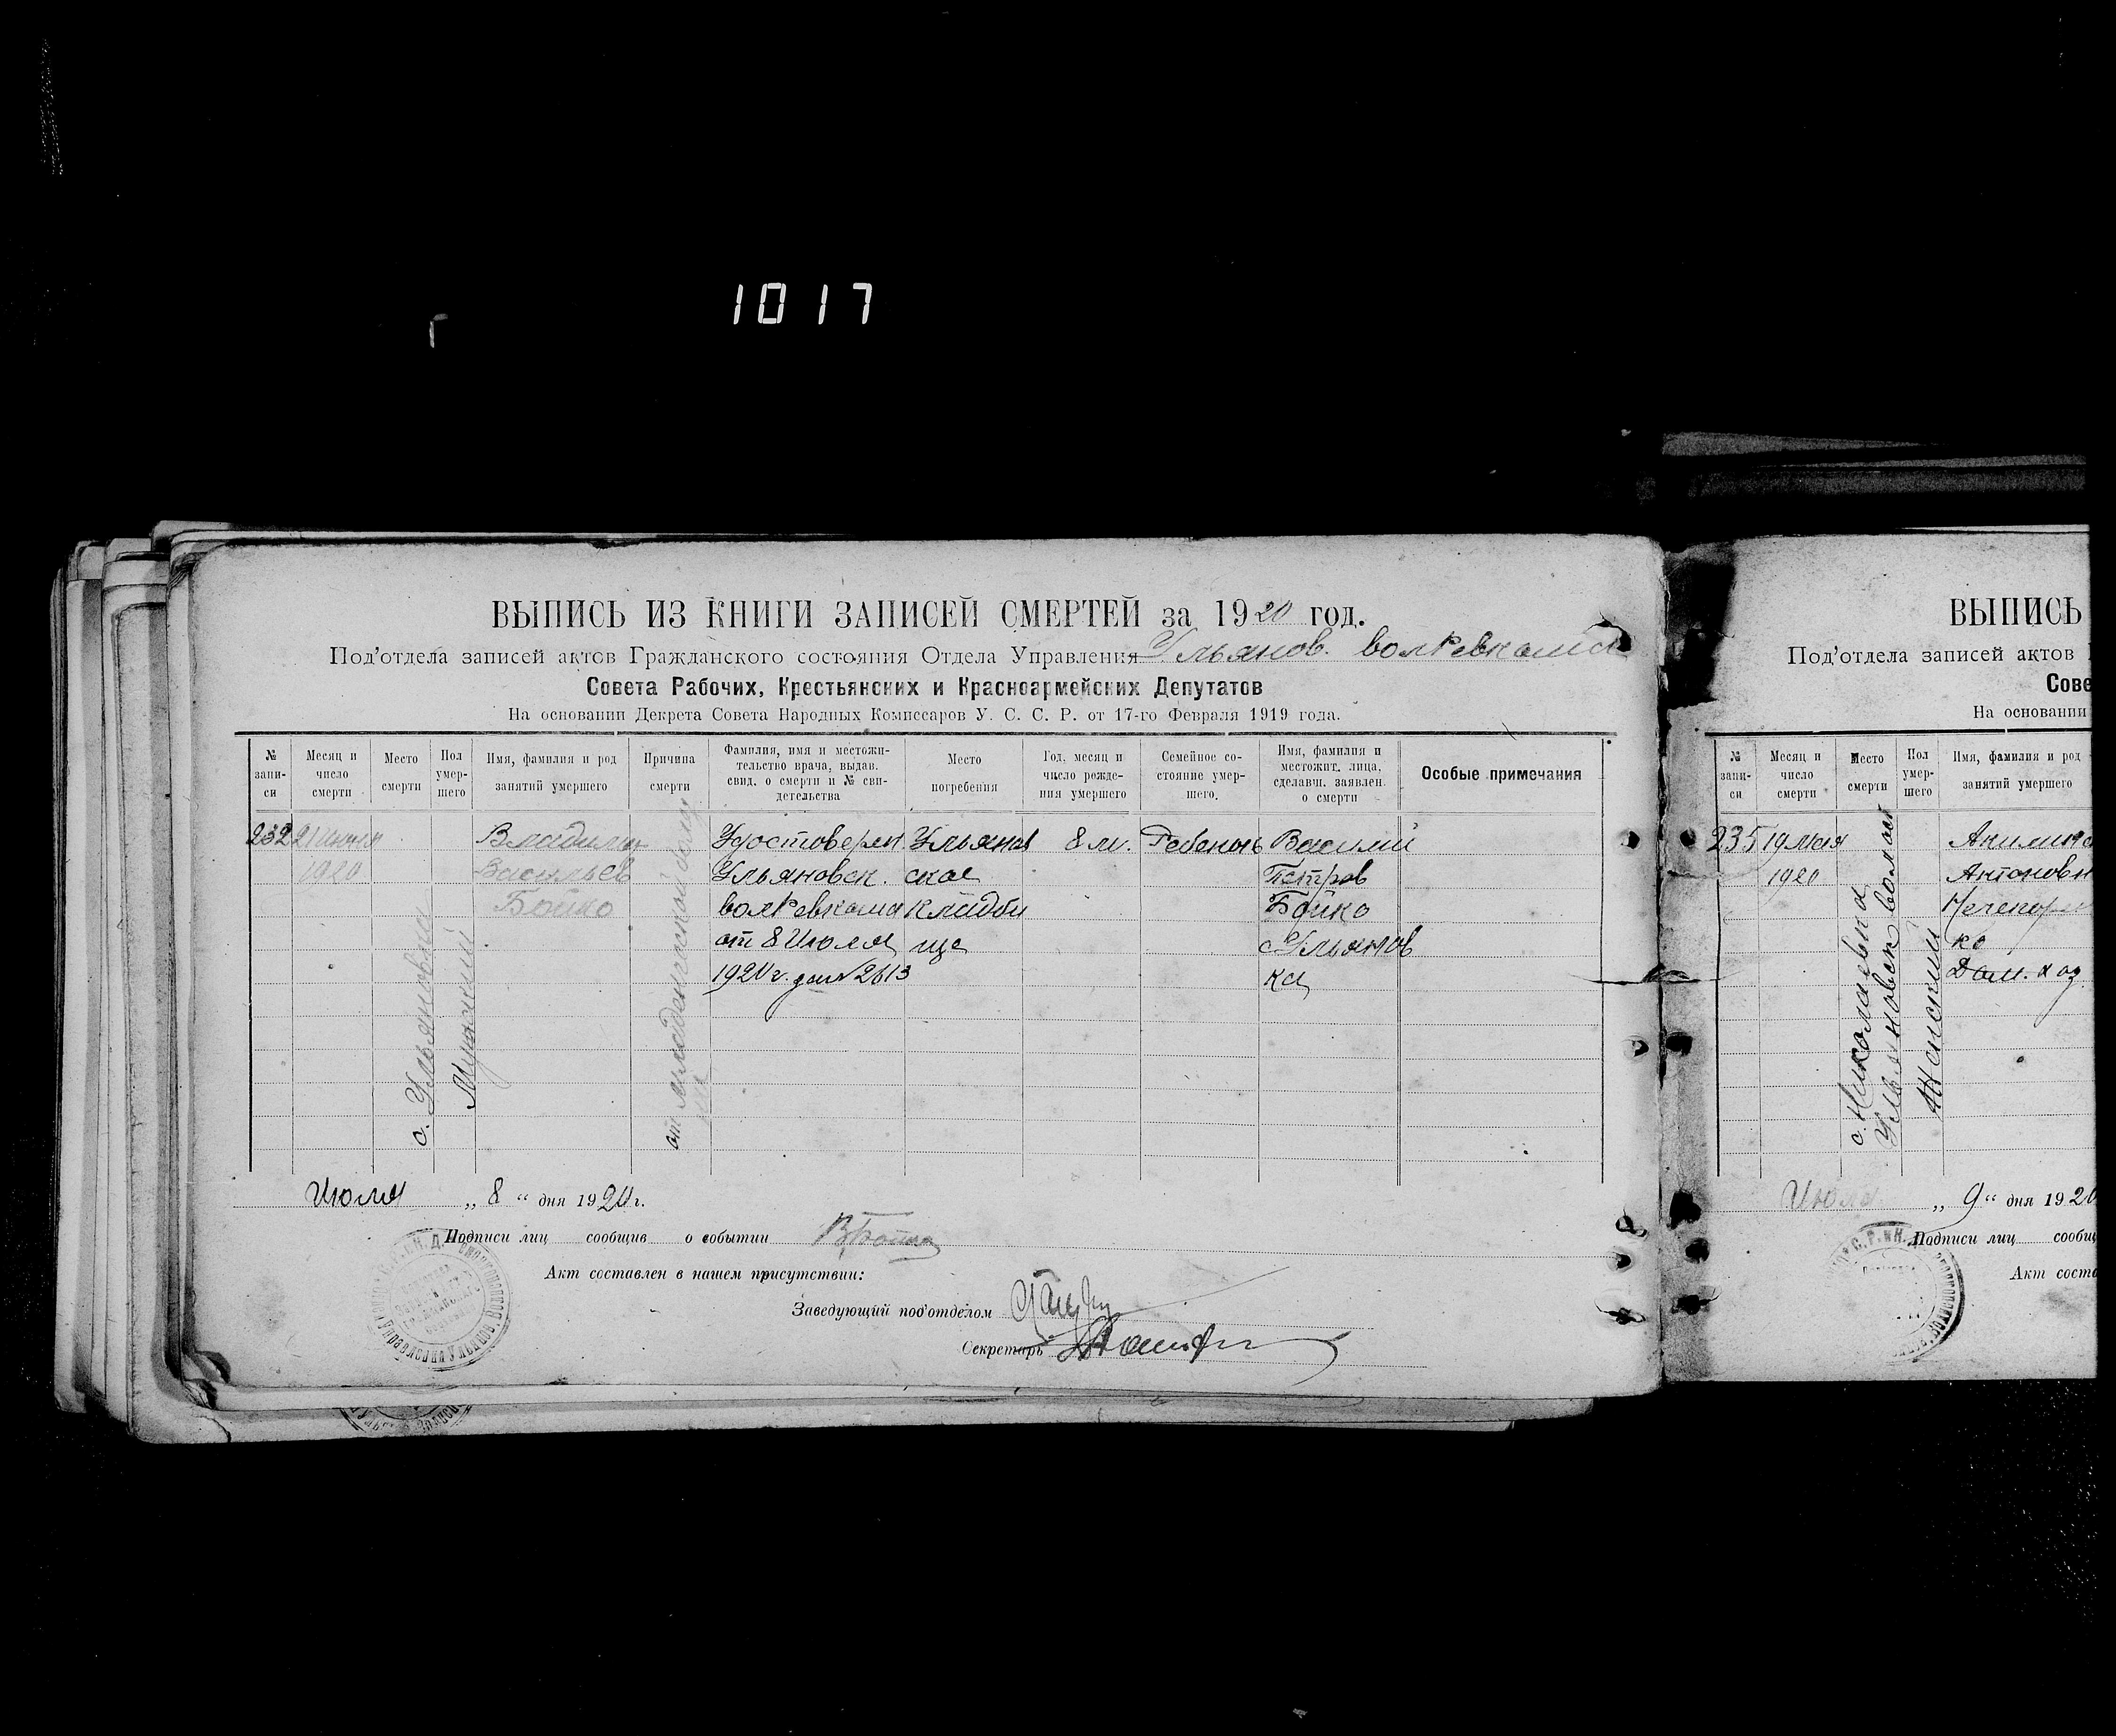 1017
ВЫПИСЬ ИЗ КНИГИ ЗАПИСЕЙ СМЕРТЕЙ за 1920 год.
Под'отдела записей актов Гражданского состояния Отдела Управления Ульянов. волРевкома
Совета Рабочих, Крестьянских и Красноармейских Депутатов
На основании Декрета Совета Народных Комиссаров У. С. С. Р. от 17-го Февраля 1919 года.
№ запи-
си
Месяц и
число
смерти
Место
смерти
Пол
умер-
шего
Имя, фамилия и род
занятий умершего
Причина
смерти
Фамилия, имя и местожи-
тельство врача, выдав.
свид. о смерти и № сви-
детельства
Место
погребения
Год, месяц и
число рожде-
ния умершего
Семейное со-
стояние умер-
шего.
Имя, фамилия и
местожит. лица,
сделавш. заявлен.
о смерти
Особые примечания
232
1920
с. Ульяновки
Мужский
Владимир
Васильев
Бойко
от младенческой
Удостоверен
Ульяновск.
волРевкома
от 8 Июля
1920 г. за № 2613
Ульянов
ское
кладби
ще
8 м.
Ребенок
Василий
Петров
Бойко
с Ульянов
ка
Июля „ 8 “ дня 1920 г.
Подписи лиц сообщив о событии ВБойко
Акт составлен в нашем присутствии:
Заведующий под'отделом
Секретарь
ВЫПИСЬ
Под'отдела записей актов
Сове
На основании
№
запи-
си
Месяц и
число
смерти
Место
смерти
Пол
умер-
шего
Имя, фамилия и род
занятий умершего
235
19 мая
1920
с. Николаевка
Ульяновск волост
Женский
Антоновн
ко
Дом. хоз.
Июля „ 9 “ дня 1920
Подписи лиц сообщ
Акт соста